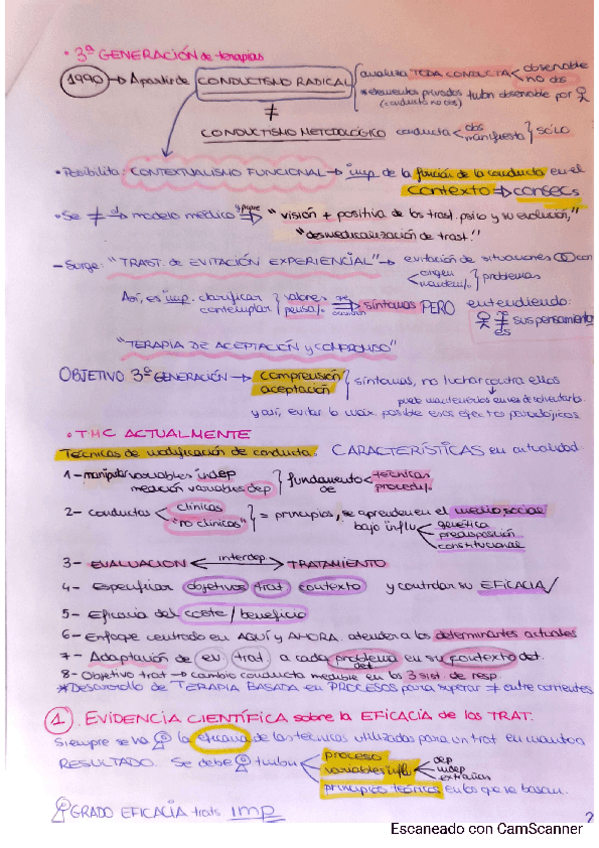 • 3ª GENERACIÓN de terapias
1990 → A partir de CONDUCTISMO RADICAL analiza TODA CONDUCTA < observable no obs
* elementos privados tmbn observable por
(conducta no obs)
≠
CONDUCTISMO METODOLÓGICO conducta < obs manifiesta > sólo
• Posibilita: CONTEXTUALISMO FUNCIONAL → imp. de la función de la conducta en el
contexto ⇒ consecs
• Se ≠ d modelo médico ⇒ "visión + positiva de los trast. psico y su evolución,"
"desmedicalización de trast."
- Surge: "TRAST. de EVITACIÓN EXPERIENCIAL" → evitación de situaciones con
< origen mantenim. } problemas
Así, es imp. clarificar contemplar } valores pensa/. ⇒ síntomas PERO entendiendo:
≠ es sus pensamientos
"TERAPIA DE ACEPTACIÓN y COMPROMISO"
OBJETIVO 3ª GENERACIÓN → comprensión aceptación } síntomas, no luchar contra ellos
puede mantenerlos en vez de solventarlo.
y así, evitar lo max. posible esos efectos paradójicos.
• TMC ACTUALMENTE
Técnicas de modificación de conducta. CARACTERÍSTICAS en actualidad.
1- manipular variables indep
medición variables dep } fundamento de < técnicas procedi/.
2- conductas < clínicas "no clínicas" } = principios, se aprenden en el medio social
bajo influ < genética predisposición constitucional
3- EVALUACIÓN ← interdep → TRATAMIENTO
4- Especificar objetivos trat contexto y controlar su EFICACIA
5- Eficacia del coste / beneficio
6- Enfoque centrado en AQUÍ y AHORA. atender a los determinantes actuales
7- Adaptación de ev trat. a cada problema det. en su contexto det.
8- Objetivo trat → cambio conducta medible en los 3 sist. de resp.
* Desarrollo de TERAPIA BASADA en PROCESOS para superar ≠ entre corrientes
1. EVIDENCIA CIENTÍFICA sobre la EFICACIA de los TRAT.
Siempre se va la eficacia de las técnicas utilizadas para un trat en cuanto a
RESULTADO. Se debe tmbn < proceso
variables influ. < dep indep extrañas
principios teóricos en los que se basan.
GRADO EFICACIA trats imp
2
Escaneado con CamScanner